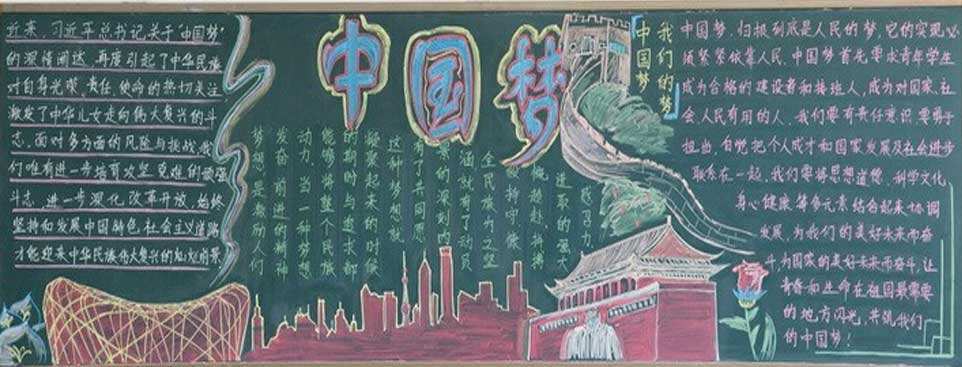 中国梦
近来，习近平总书记关于“中国梦”
的深情阐述，再度引起了中华民族
对自身光荣、责任、使命的热切关注
激发了中华儿女走向伟大复兴的斗
志。面对多方面的风险与挑战，我
们唯有进一步培育攻坚克难的顽强
斗志，进一步深化改革开放，始终
坚持和发展中国特色社会主义道路
才能迎来中华民族伟大复兴的灿烂前景
梦想，是激励人们
发奋前进的精神
动力。当一种梦想
能够将整个民族
的期盼与追求都
凝聚起来的时候
这种梦想就
有了共同愿
景的深刻内
涵，就有了动员
全民族为之坚
持守、慷
慨趋赴、拼搏
进取的强大
感召力
我们的梦
中国梦
中国梦，归根到底是人民的梦，它的实现必
须紧紧依靠人民，中国梦首先要求青年学生
成为合格的建设者和接班人，成为对国家、社
会、人民有用的人。我们要有责任意识，要勇于
担当，自觉把个人成才和国家发展及社会进步
联系在一起。我们要将思想道德、科学文化、
身心健康等多元素结合起来协调
发展，为我们的美好未来而奋
斗，为国家的美好未来而奋斗，让
青春和生命在祖国最需要
的地方闪光，共筑我们
的中国梦！